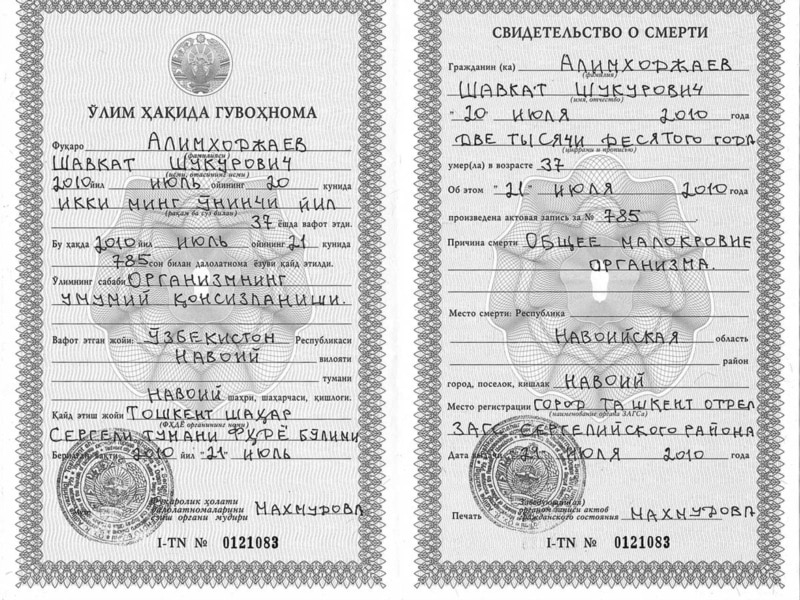 ЎЛИМ ҲАҚИДА ГУВОҲНОМА
Фуқаро АЛИМХОДЖАЕВ
(фамилияси)
ШАВКАТ ШУКУРОВИЧ
(исми, отасининг исми)
2010 йил ИЮЛЬ ойининг 20 кунида
ИККИ МИНГ ЎНИНЧИ ЙИЛ
(рақам ва сўз билан)
37 ёшда вафот этди.
Бу ҳақда 2010 йил ИЮЛЬ ойининг 21 кунида
785 сон билан далолатнома ёзуви қайд этилди.
Ўлимнинг сабаби ОРГАНИЗМНИНГ
УМУМИЙ ҚОНСИЗЛАНИШИ.
Вафот этган жойи: ЎЗБЕКИСТОН Республикаси
НАВОИЙ вилояти
тумани
НАВОИЙ шаҳри, шаҳарчаси, қишлоғи.
Қайд этиш жойи ТОШКЕНТ ШАҲАР
(ФҲДЁ органининг номи)
СЕРГЕЛИ ТУМАНИ ФҲДЁ БУЛИМИ
Берилган вақти 2010 йил "21" ИЮЛЬ
Фуқаролик ҳолати
далолатномаларини
ёзиш органи мудири МАХМУДОВА
I-TN № 0121083
СВИДЕТЕЛЬСТВО О СМЕРТИ
Гражданин (ка) АЛИМХОДЖАЕВ
(фамилия)
ШАВКАТ ШУКУРОВИЧ
(имя, отчество)
"20" ИЮЛЯ 2010 года
ДВЕ ТЫСЯЧИ ДЕСЯТОГО ГОДА
(цифрами и прописью)
умер(ла) в возрасте 37
Об этом "21" ИЮЛЯ 2010 года
произведена актовая запись за № 785.
Причина смерти ОБЩЕЕ МАЛОКРОВИЕ
ОРГАНИЗМА.
Место смерти: Республика
НАВОИЙСКАЯ область
район
город, поселок, кишлак НАВОИЙ
Место регистрации ГОРОД ТАШКЕНТ ОТДЕЛ
(наименование органа ЗАГСа)
ЗАГС СЕРГЕЛИЙСКОГО РАЙОНА
Дата выдачи "21" ИЮЛЯ 2010 года
Заведующий(ая)
органом записи актов
Печать гражданского состояния МАХМУДОВА
I-TN № 0121083